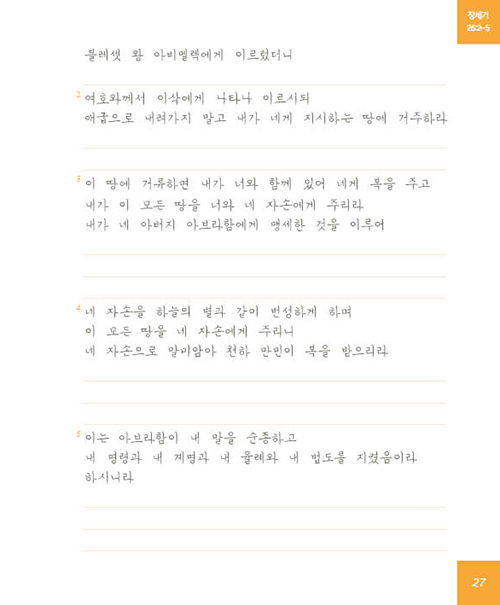 창세기
26:2-5
블레셋 왕 아비멜렉에게 이르렀더니
2 여호와께서 이삭에게 나타나 이르시되
애굽으로 내려가지 말고 내가 네게 지시하는 땅에 거주하라
3 이 땅에 거류하면 내가 너와 함께 있어 네게 복을 주고
내가 이 모든 땅을 너와 네 자손에게 주리라
내가 네 아버지 아브라함에게 맹세한 것을 이루어
4 네 자손을 하늘의 별과 같이 번성하게 하며
이 모든 땅을 네 자손에게 주리니
네 자손으로 말미암아 천하 만민이 복을 받으리라
5 이는 아브라함이 내 말을 순종하고
내 명령과 내 계명과 내 율례와 내 법도를 지켰음이라
하시니라
27